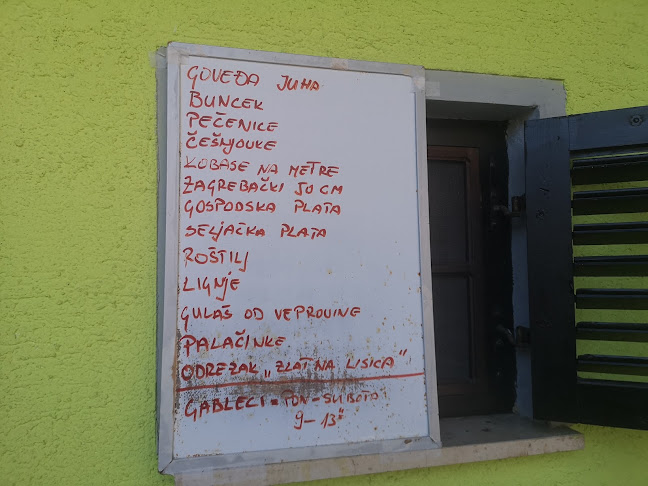 GOVEĐA JUHA
BUNCEK
PEČENICE
ČEŠNJOVKE
KOBASE NA METRE
ZAGREBAČKI 50 CM
GOSPODSKA PLATA
SELJAČKA PLATA
ROŠTILJ
LIGNJE
GULAŠ OD VEPROVINE
PALAČINKE
ODREZAK „ZLATNA LISICA"
GABLECI = PON - SUBOTA
9 - 13 h